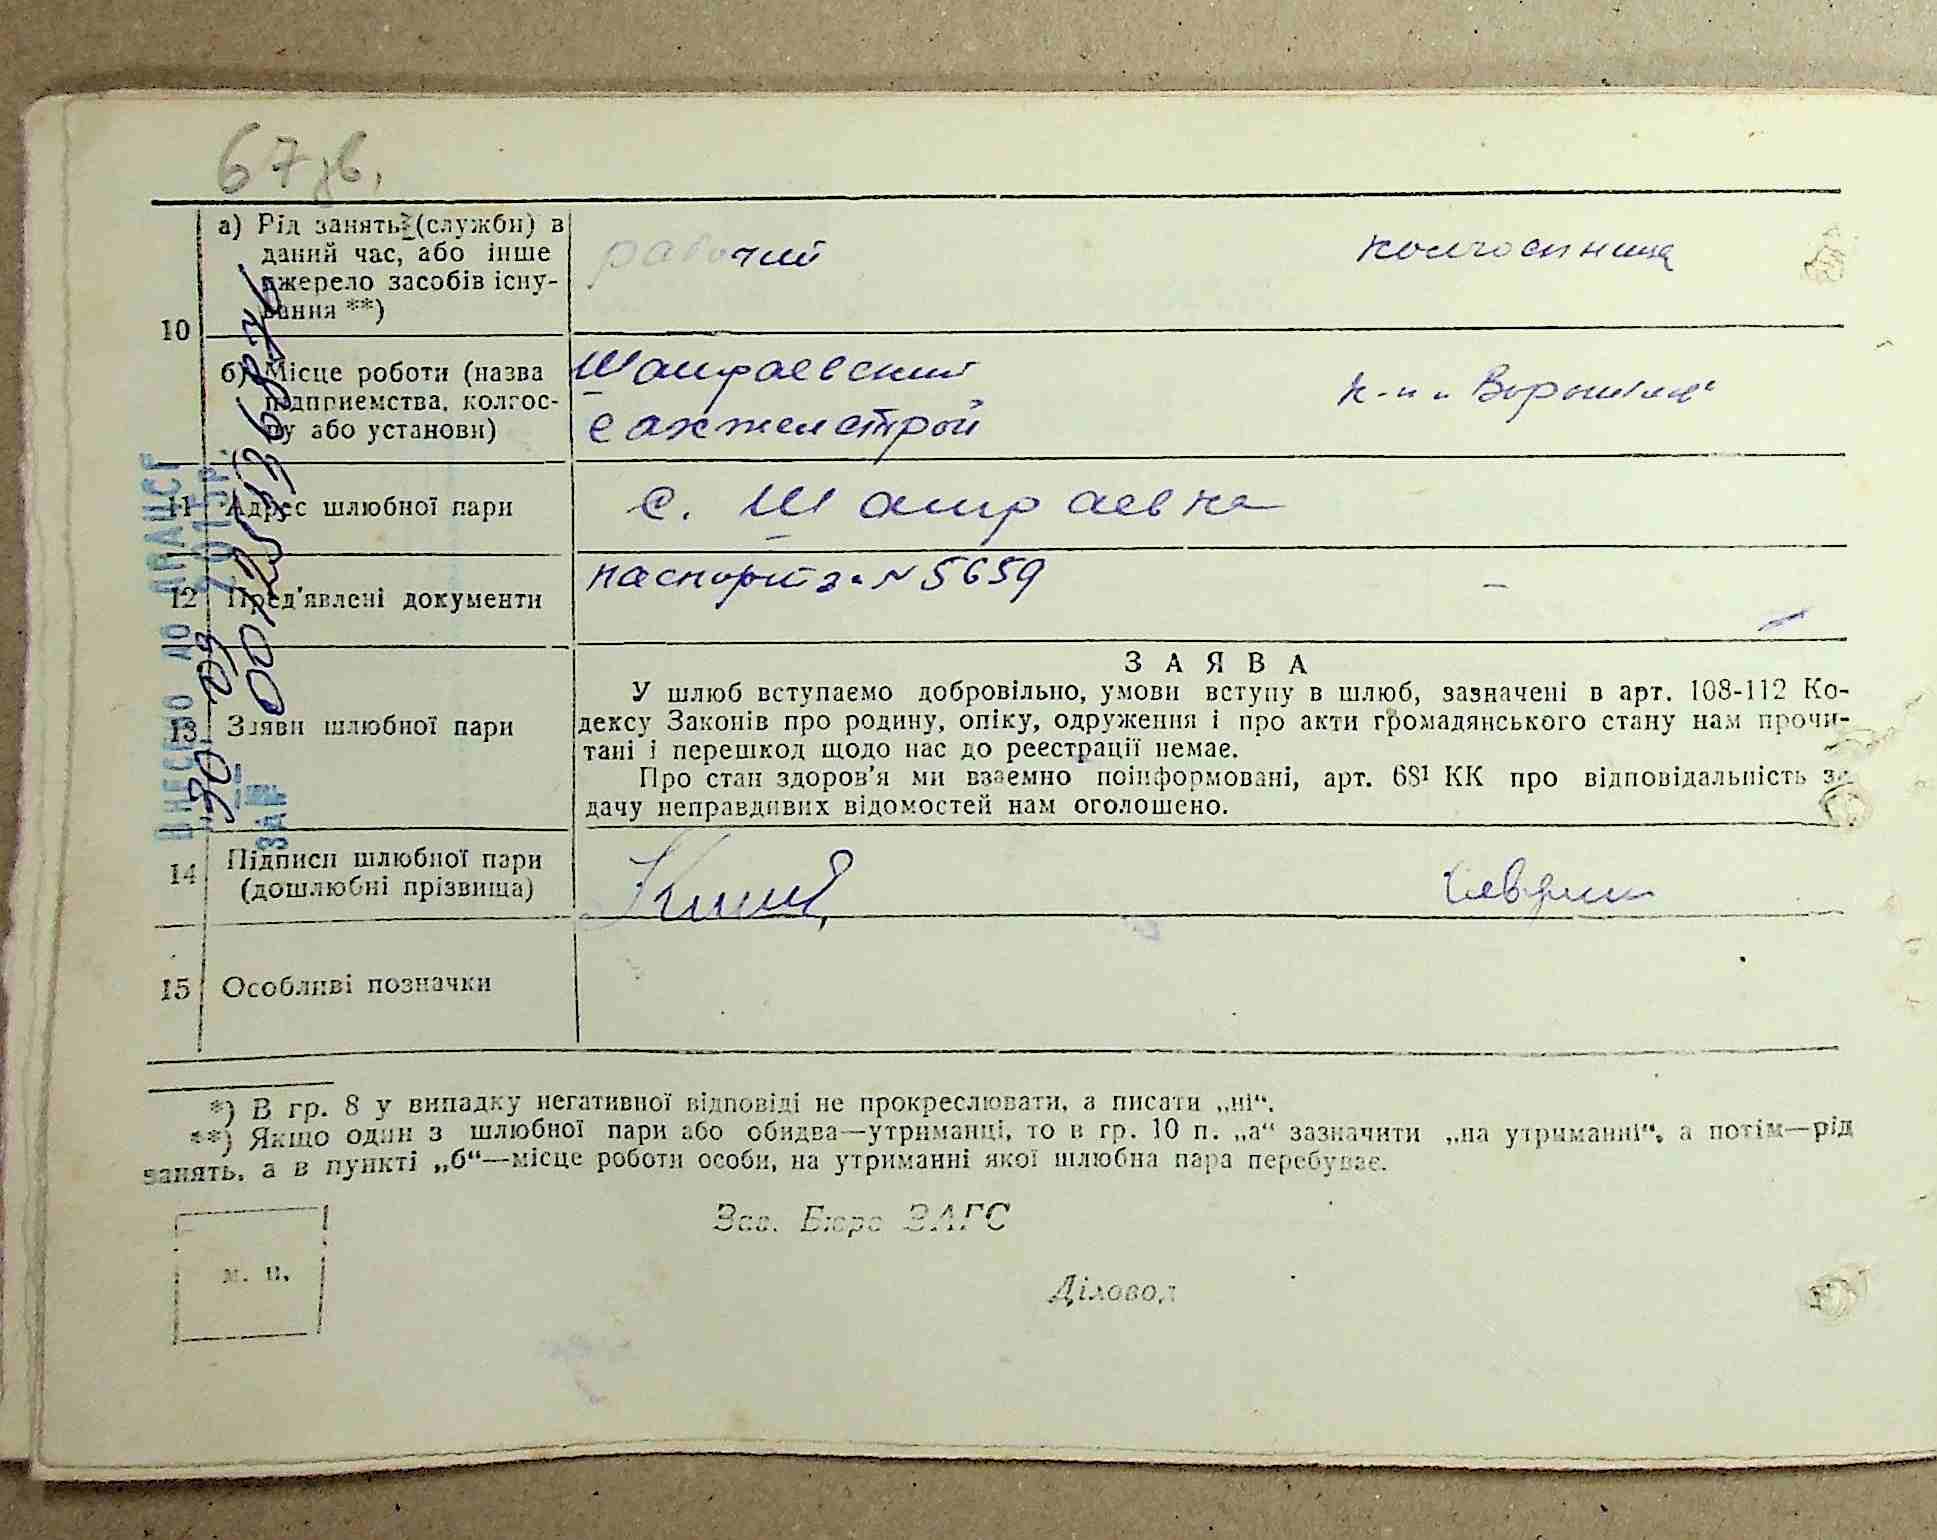 67зв.
а) Рід занять (служби) в
даний час, або інше
джерело засобів існу-
вання **)
рабочий
колгосница
10
б) Місце роботи (назва
підприємства, колгос-
пу або установи)
Шамраевский
сахжелстрой
к-п и Ворошилова
11 Адрес шлюбної пари
с. Шамраевка
12 Пред'явлені документи
паспорт за № 5659
–
13 Заяви шлюбної пари
ЗАЯВА
У шлюб вступаємо добровільно, умови вступу в шлюб, зазначені в арт. 108-112 Ко-
дексу Законів про родину, опіку, одруження і про акти громадянського стану нам прочи-
тані і перешкод щодо нас до реєстрації немає.
Про стан здоров'я ми взаємно поінформовані, арт. 68¹ КК про відповідальність за
дачу неправдивих відомостей нам оголошено.
14 Підписи шлюбної пари
(дошлюбні прізвища)
15 Особливі позначки
ВНЕСЕНО ДО ДРАЦСГ
"30" 09 2015р.
ЗА№ 00125136876
*) В гр. 8 у випадку негативної відповіді не прокреслювати, а писати „ні“.
**) Якщо один з шлюбної пари або обидва—утриманці, то в гр. 10 п. „а“ зазначити „на утриманні“, а потім—рід
занять, а в пункті „б“—місце роботи особи, на утриманні якої шлюбна пара перебуває.
Зав. Бюро ЗАГС
М. П.
Діловод